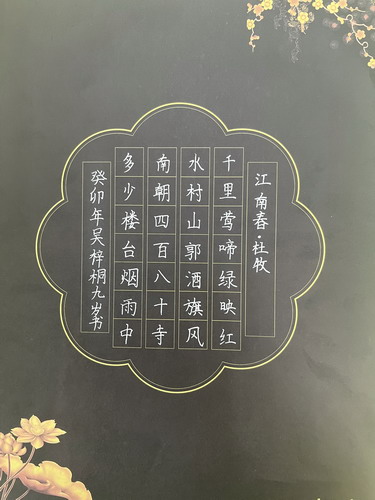 江南春·杜牧
千里莺啼绿映红
水村山郭酒旗风
南朝四百八十寺
多少楼台烟雨中
癸卯年吴梓桐九岁书